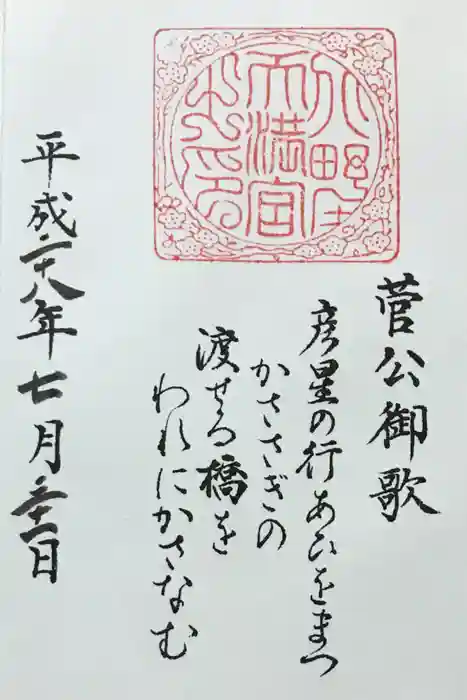 天満宮
菅公御歌
彦星の行あひをまつ
かささぎの
渡せる橋を
われにかさなむ
平成二十八年七月三十一日